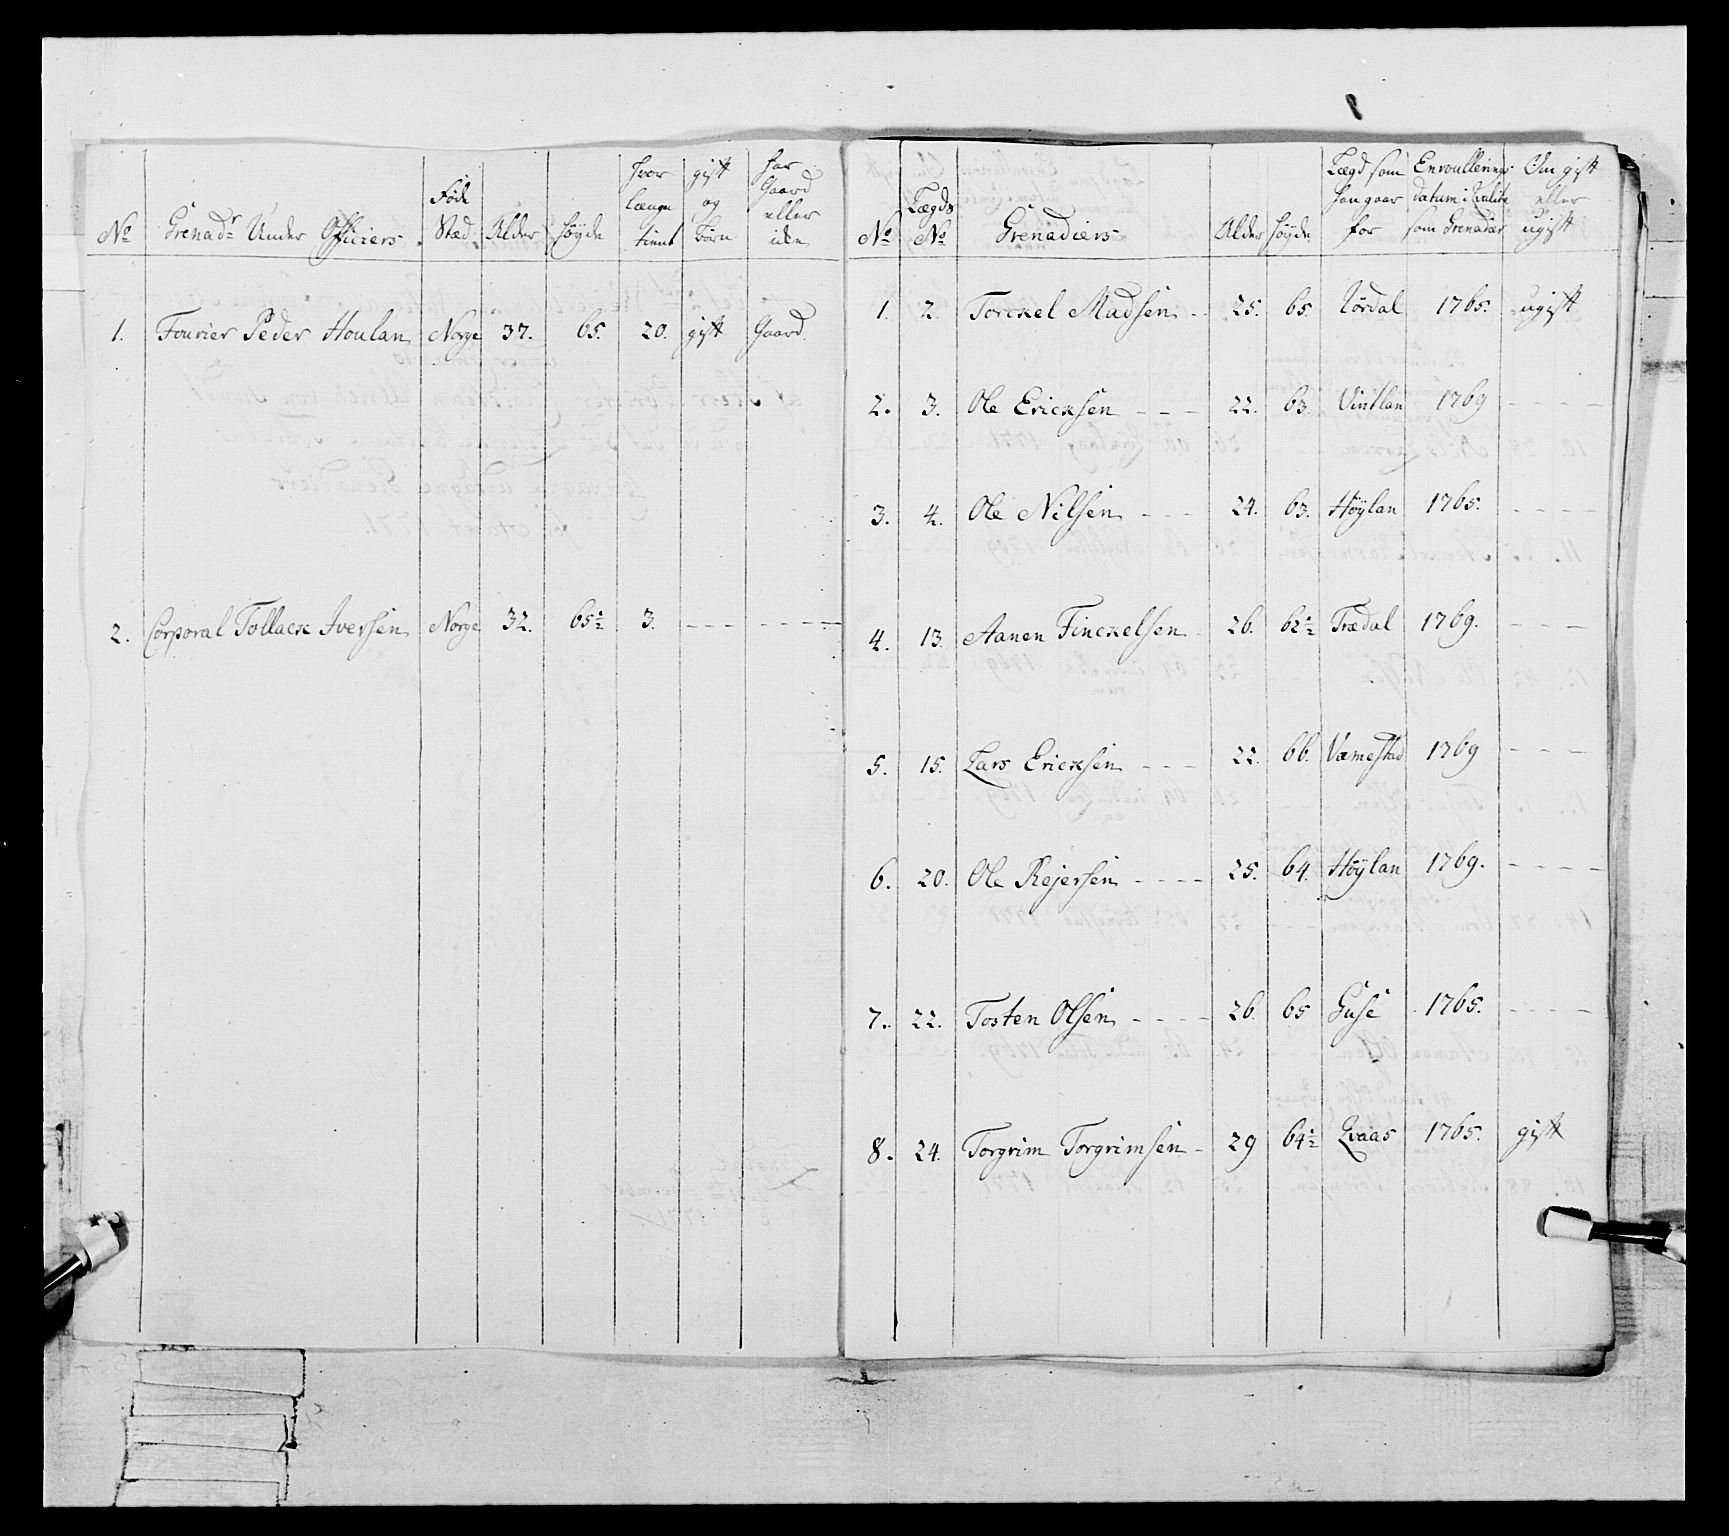 No | Grenadr Under Officiers | Føde Stæd | Alder | Høyde | hvor længe tient | gift og børn | har Gaard eller iche
1. | Fourier Peder Houlan | Norge | 37. | 65. | 20. | gift | Gaard
2. | Corporal Tollack Iversen | Norge | 32. | 65½ | 3. | - - - | - - - -
No | Lægds No | Grenadiers | Alder | Høyde | Lægd som han gaar for | Enroullerings datum i Qvalite som Grenadær | Om gift eller ugift
1. | 2. | Torckel Madsen - - | 25. | 65. | Nørdal | 1765. | ugift
2. | 3. | Ole Ericksen - - - | 22. | 63. | Vintlan | 1769 | - - - -
3. | 4. | Ole Nilsen - - - | 24. | 63. | Høÿlan | 1765. | - - - -
4. | 13. | Aanen Finckelsen - | 26. | 62½ | Trædal | 1769. | - - -
5. | 15. | Lars Ericksen - - - | 22. | 66. | Væmestad | 1769 | - - -
6. | 20. | Ole Rejersen - - - - | 25. | 64. | Høÿlan | 1769. | - - - -
7. | 22. | Tosten Olsen - - - - | 26. | 65 | Guse | 1765. | - - - -
8. | 24. | Torgrim Torgrimsen - | 29 | 64½ | Qvaas | 1765. | gift